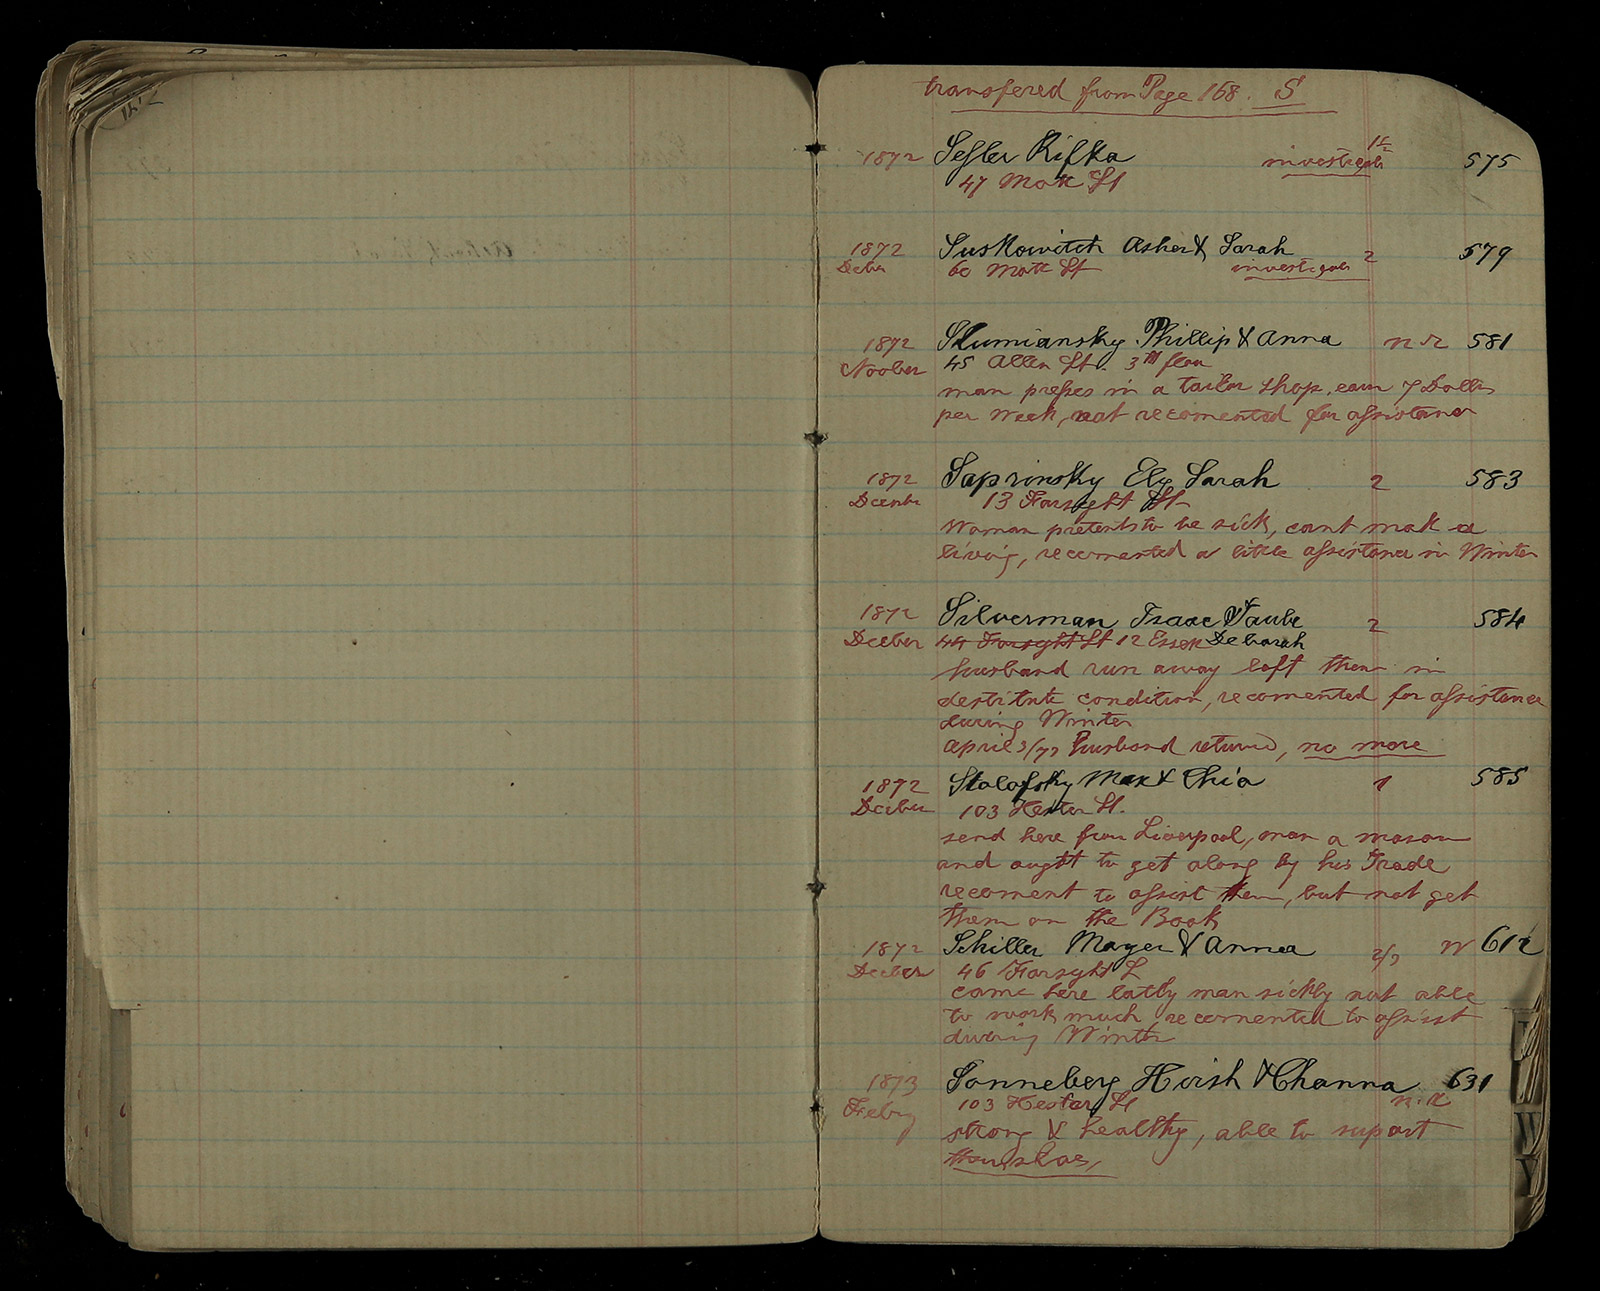 transfered from Page 168. S
1872 Sessler Rifka investigate 1 1/2 575
47 Mott St
1872 Suskowitch Asher & Sarah 2 579
Deber 60 Mott St investigate
1872 Slumiansky Phillip & Anna n r 581
Noober 45 Allen St. 3th floor
man presses in a tailor shop, earn 7 Dollr
per Week, not recomented for assistance
1872 Saprinsky Ely Sarah 2 583
Decembr 13 Forsyght St
Woman pretents to be sick, cant mak a
living, recomented a little assistance in Winter
1872 Silverman Isaac & Taube 2 584
Deceber 44 Forsyght St 12 Essex Deborah
husband run away left them in
destitute condition, recomented for assistance
during Winter
april 3/73 husband returned, no more
1872 Stalofsky Max & Chia 1 585
Deceber 103 Hester St.
send here from Liverpool, man a mason
and ought to get along by his Trade
recoment to assist them, but not get
them on the Book
1872 Schiller Mayer & Anna 2/3 W 612
Deceber 46 Forsyght S
came here latly man sickly not able
to work much recomented to assist
during Winter
1873 Sonneberg Hirsh & Channa 631
Febry 103 Hester St n. r.
strong & healthy, able to suport
themselves,
W
Y